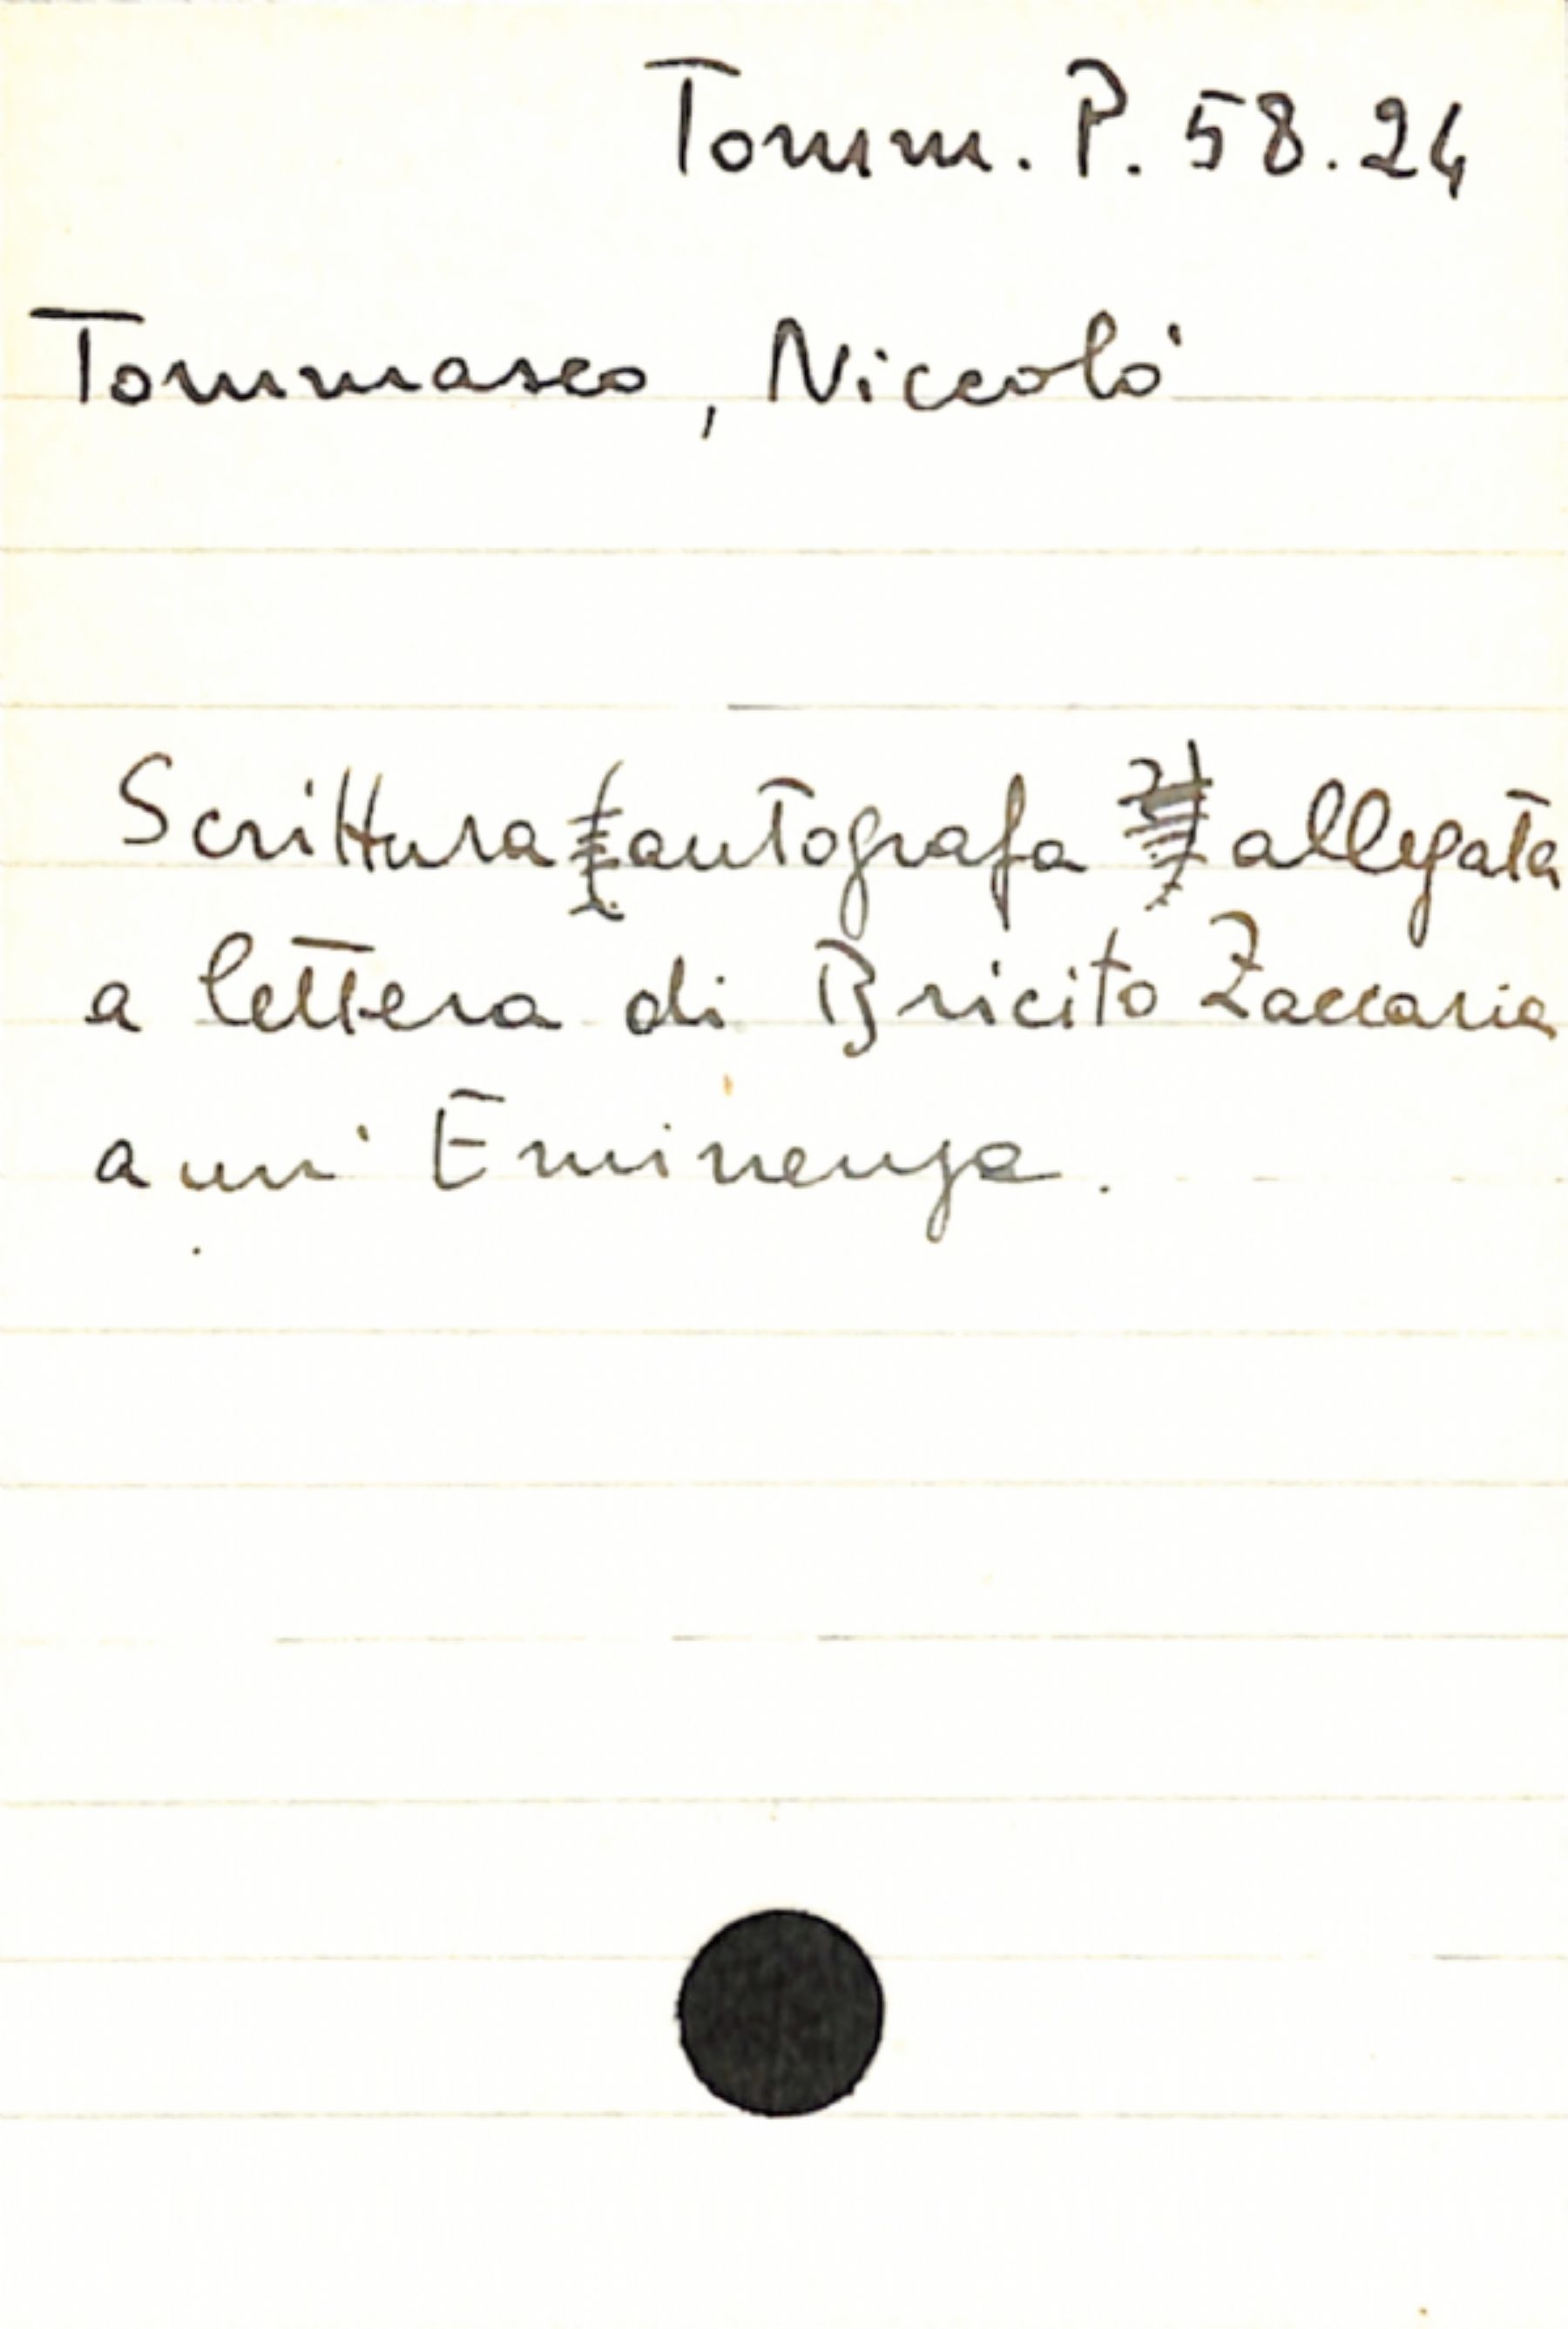 Tomm. P. 58.24
Tommaseo, Niccolò
Scrittura autografa allegata
a lettera di Bricito Zaccaria
a un' Eminenza.